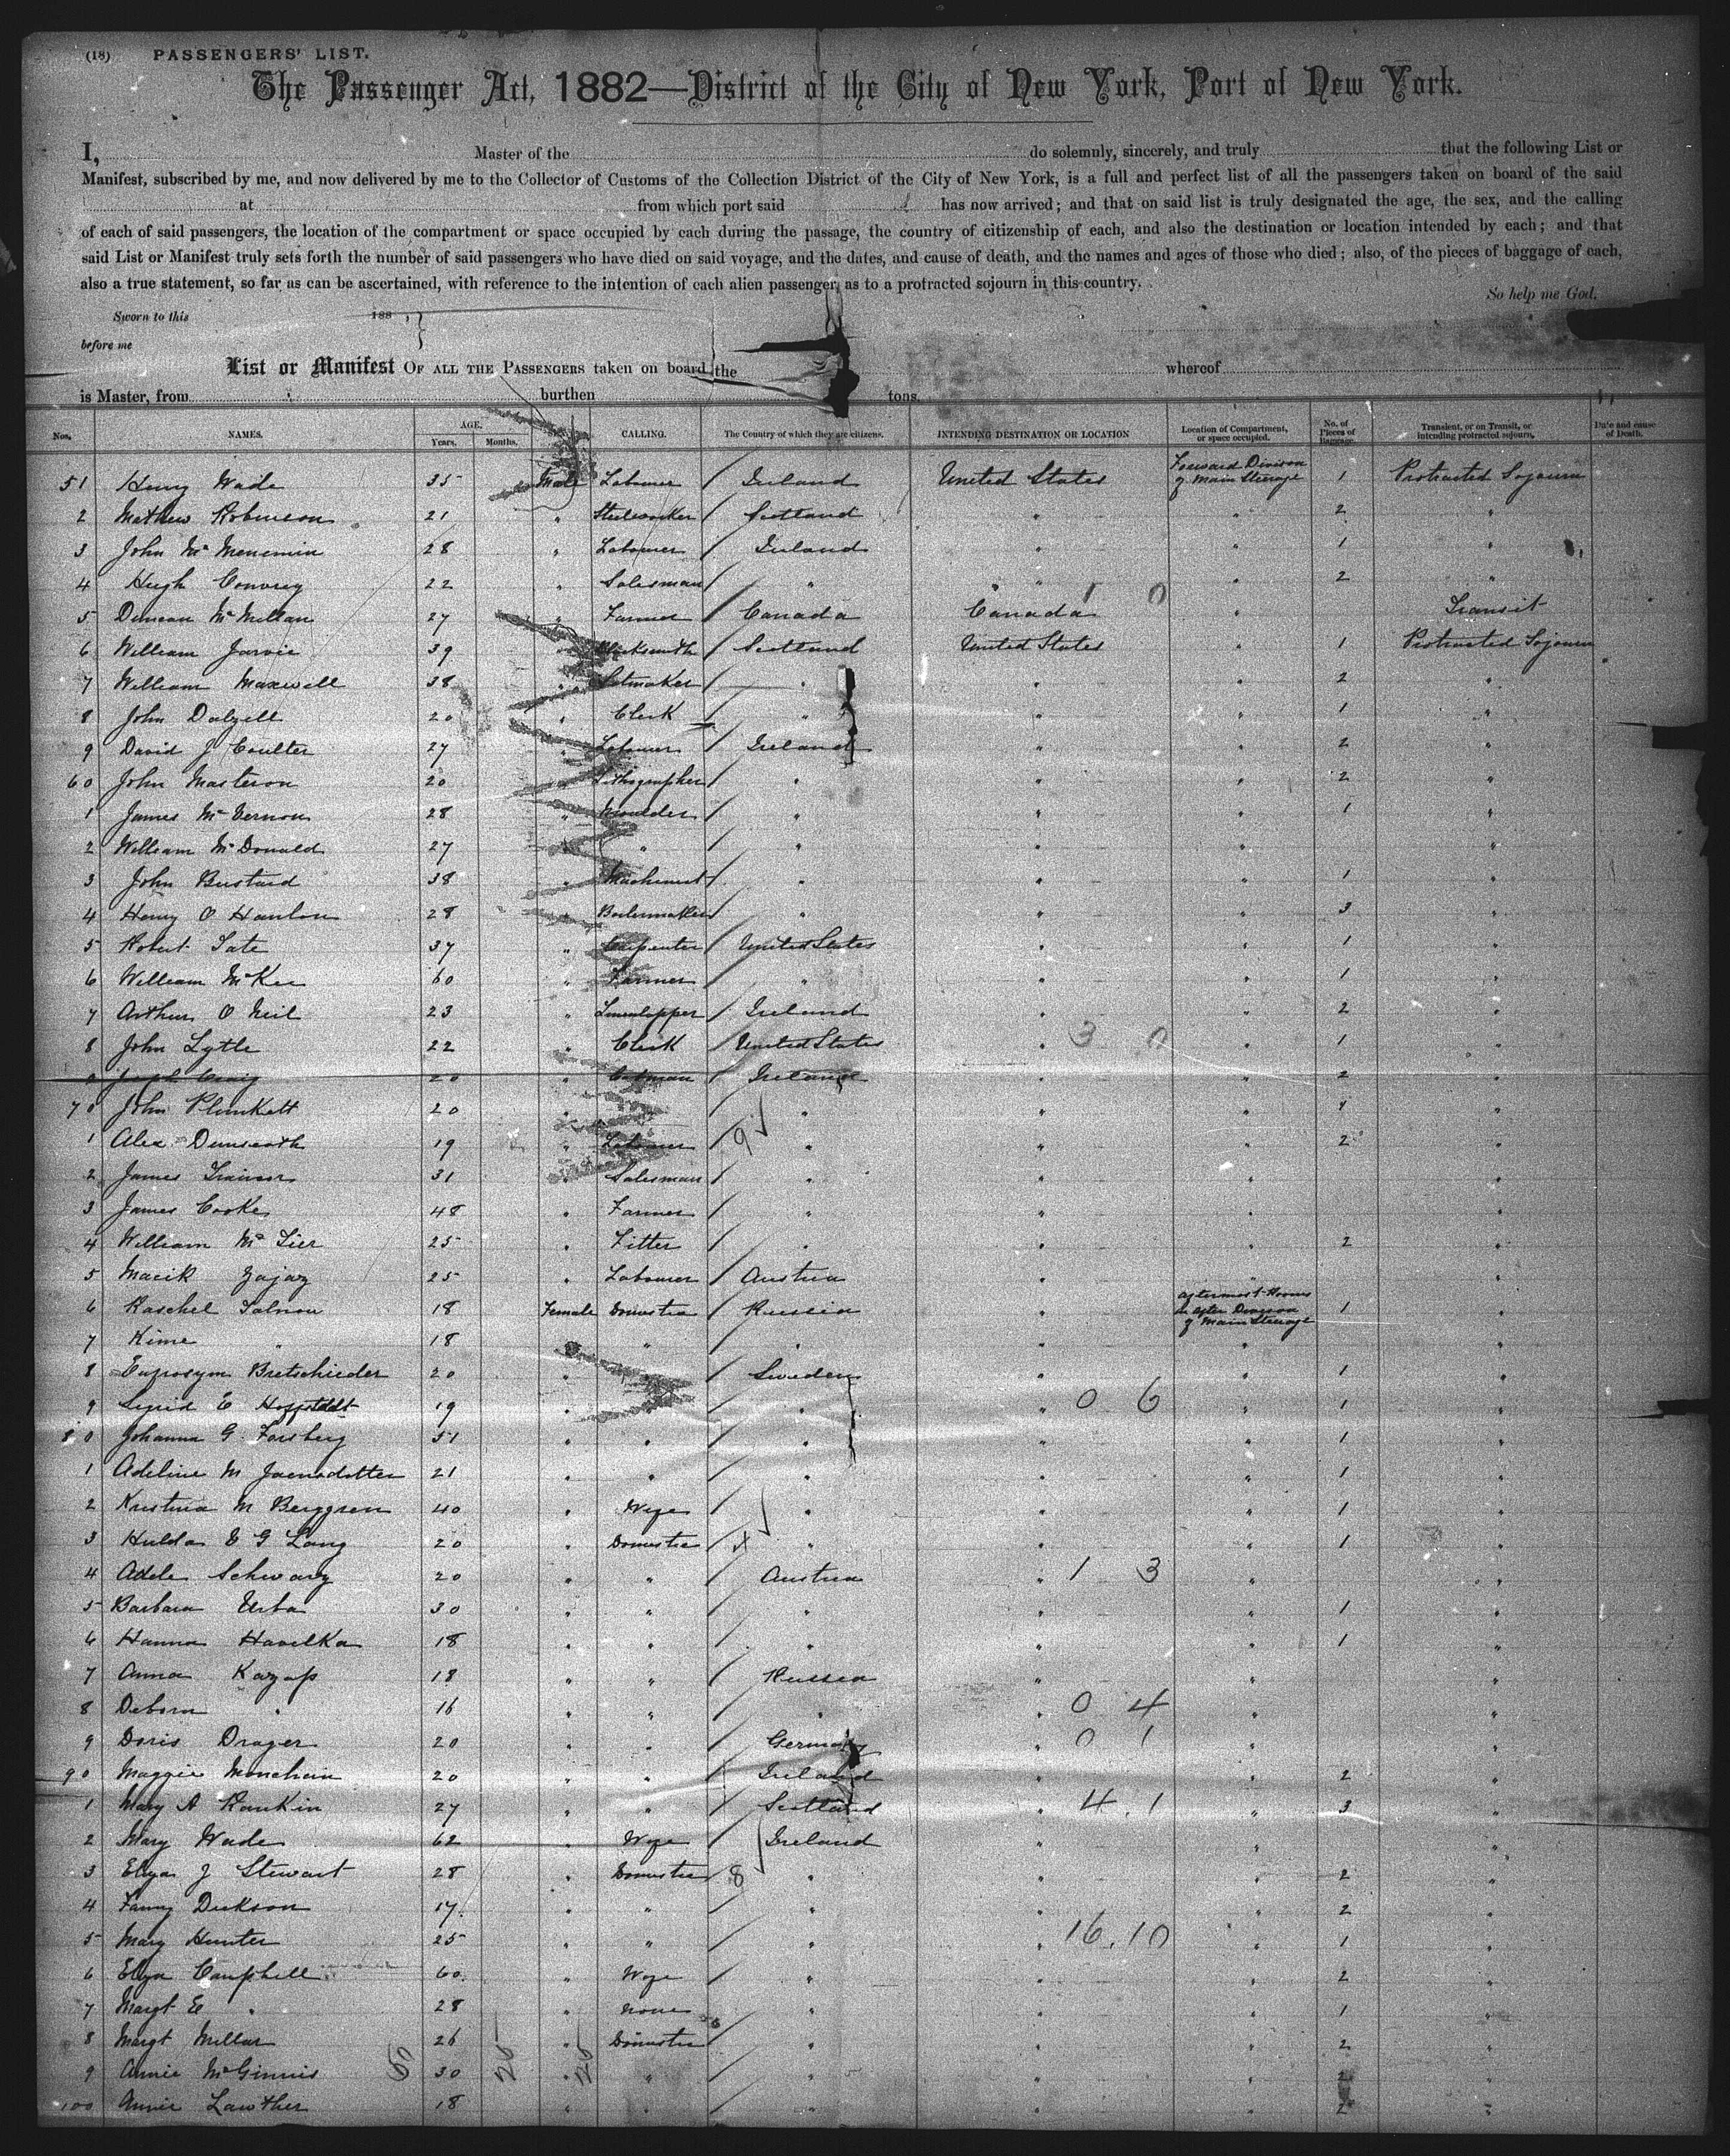 (18) PASSENGERS' LIST.
The Passenger Act, 1882—District of the City of New York, Port of New York.
I, Master of the do solemnly, sincerely, and truly that the following List or
Manifest, subscribed by me, and now delivered by me to the Collector of Customs of the Collection District of the City of New York, is a full and perfect list of all the passengers taken on board of the said
at from which port said has now arrived; and that on said list is truly designated the age, the sex, and the calling
of each of said passengers, the location of the compartment or space occupied by each during the passage, the country of citizenship of each, and also the destination or location intended by each; and that
said List or Manifest truly sets forth the number of said passengers who have died on said voyage, and the dates, and cause of death, and the names and ages of those who died; also, of the pieces of baggage of each,
also a true statement, so far as can be ascertained, with reference to the intention of each alien passenger, as to a protracted sojourn in this country.
So help me God.
Sworn to this 188 ,
before me
List or Manifest OF ALL THE PASSENGERS taken on board the whereof
is Master, from burthen tons.
Nos. NAMES. AGE. Years. Months. CALLING. The Country of which they are citizens. INTENDING DESTINATION OR LOCATION Location of Compartment, or space occupied. No. of Pieces of Baggage. Transient, or on Transit, or intending protracted sojourn. Date and cause of Death.
51 Henry Wade 35 Male Labourer / Ireland United States Forward Division of Main Steerage 1 Protracted Sojourn
2 Mathew Robinson 21 " Steelworker / Scotland " " 2 "
3 John McMenemin 28 " Labourer / Ireland " " 1 "
4 Hugh Convrey 22 " Salesman / " " " 2 "
5 Duncan McMillan 27 " Farmer / Canada Canada 1 0 " Transit
6 William Jarvie 39 " Blacksmith / Scotland United States " 1 Protracted Sojourn
7 William Maxwell 38 " / " " " 2 "
8 John Dalzell 20 " Clerk / " " " 1 "
9 David J Coulter 27 " Labourer / Ireland " " 2 "
60 John Masterson 20 " Lithographer / " " " 2 "
1 James McVernon 28 " Moulder / " " " 1 "
2 William McDonald 27 " " / " " " "
3 John Bustard 38 " Machinist / " " " 1 "
4 Henry O Hanlon 28 " Boilermaker / " " " 3 "
5 Robert Tate 37 " Carpenter / United States " " 1 "
6 William McKee 60 " Farmer / " " " 1 "
7 Arthur O Neil 23 " Linenlapper / Ireland " " 2 "
8 John Lytle 22 " Clerk / United States " 3 0 " 1 "
9 Joseph Craig 20 " / Ireland " " 2 "
70 John Plunkett 20 " / " " " "
1 Alex Dunseath 19 " Labourer / 9 " " " 2 "
2 James Trainor 31 " Salesman / " " " "
3 James Cooke 48 " Farmer / " " " "
4 William McTier 25 " Fitter / " " " 2 "
5 Macik Zajaz 25 " Labourer / Austria " " "
6 Raschel Salnon 18 Female Domestic / Russia " aftermost Rooms in after Division of Main Steerage 1 "
7 Kime " 18 " " / " " " "
8 Bretschieder 20 " / Sweden " " 1 "
9 Sigrid E 19 " / " " 0 6 " 1 "
80 Johanna G Forsberg 51 " " / " " " 1 "
1 Adeline M 21 " " / " " " 1 "
2 Kristina M Berggren 40 " Wife / " " " 1 "
3 Hulda E G Lang 20 " Domestic / x " " " 1 "
4 Adele Schwarz 20 " " / Austria " 1 3 " "
5 Barbara Urba 30 " " / " " " 1 "
6 Hanna Havelka 18 " " / " " " 1 "
7 Anna 18 " " / Russia " " "
8 Debora " 16 " " / " " 0 4 " "
9 Doris Drager 20 " " / Germany " 0 1 " "
90 Maggie Monehan 20 " " / Ireland " " 2 "
1 Mary A Rankin 27 " " / Scotland " 4 1 " 3 "
2 Mary Wade 62 " Wife / Ireland " " "
3 Eliza J Stewart 28 " Domestic 8 " " " 2 "
4 Fanny Dickson 17 " " / " " " 2 "
5 Mary Hunter 25 " " / " " 16.10 " 1 "
6 Eliza Campbell 60 " Wife / " " " 2 "
7 Margt E " 28 " None / " " " 1 "
8 Margt Millar 26 " Domestic / " " " 2 "
9 Annie McGinnis 30 " " / " " " 2 "
100 Annie Lawther 18 " " / " " " 2 "